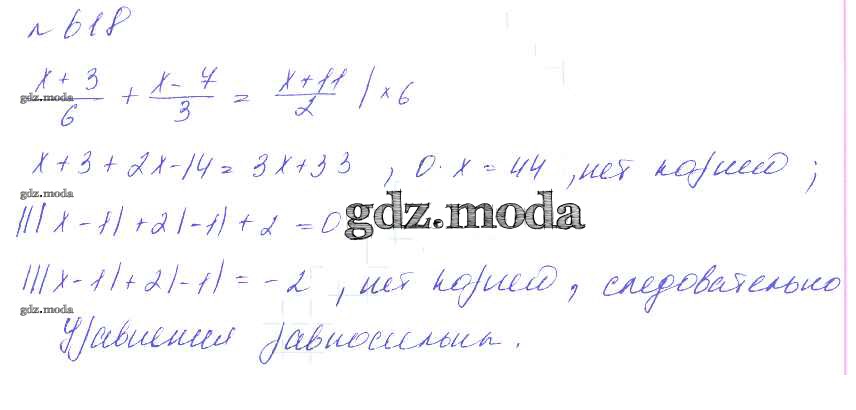 № 618
(x + 3)/6 + (x - 7)/3 = (x + 11)/2 | × 6
gdz.moda
x + 3 + 2x - 14 = 3x + 33 , 0 · x = 44 , нет корней ;
gdz.moda
||| x - 1| + 2| - 1| + 2 = 0
gdz.moda
|||x - 1| + 2| - 1| = - 2 , нет корней , следовательно
gdz.moda
Уравнения равносильны .